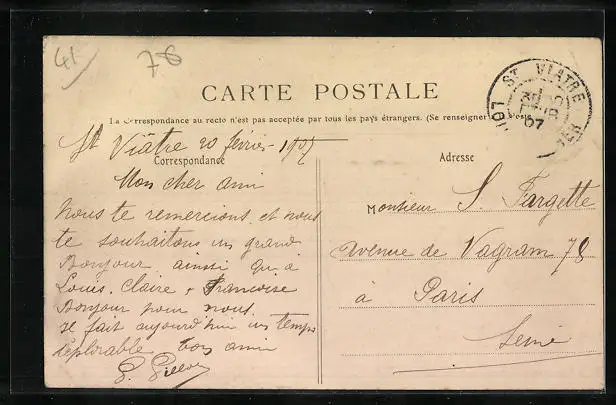 41
76
CARTE POSTALE
La Correspondance au recto n'est pas acceptée par tous les pays étrangers. (Se renseigner à la Poste
ST VIATRE
LOIR CHER
07
St Viâtre 20 février 1907
Correspondance
Adresse
Mon cher ami
nous te remercions et nous
te souhaitons un grand
Bonjour ainsi qu'à
Louis, Claire & Françoise
Bonjour pour nous.
Il fait aujourd'hui un temps
déplorable ton ami
Monsieur S. Fargette
avenue de Vagram 78
à Paris
Seine